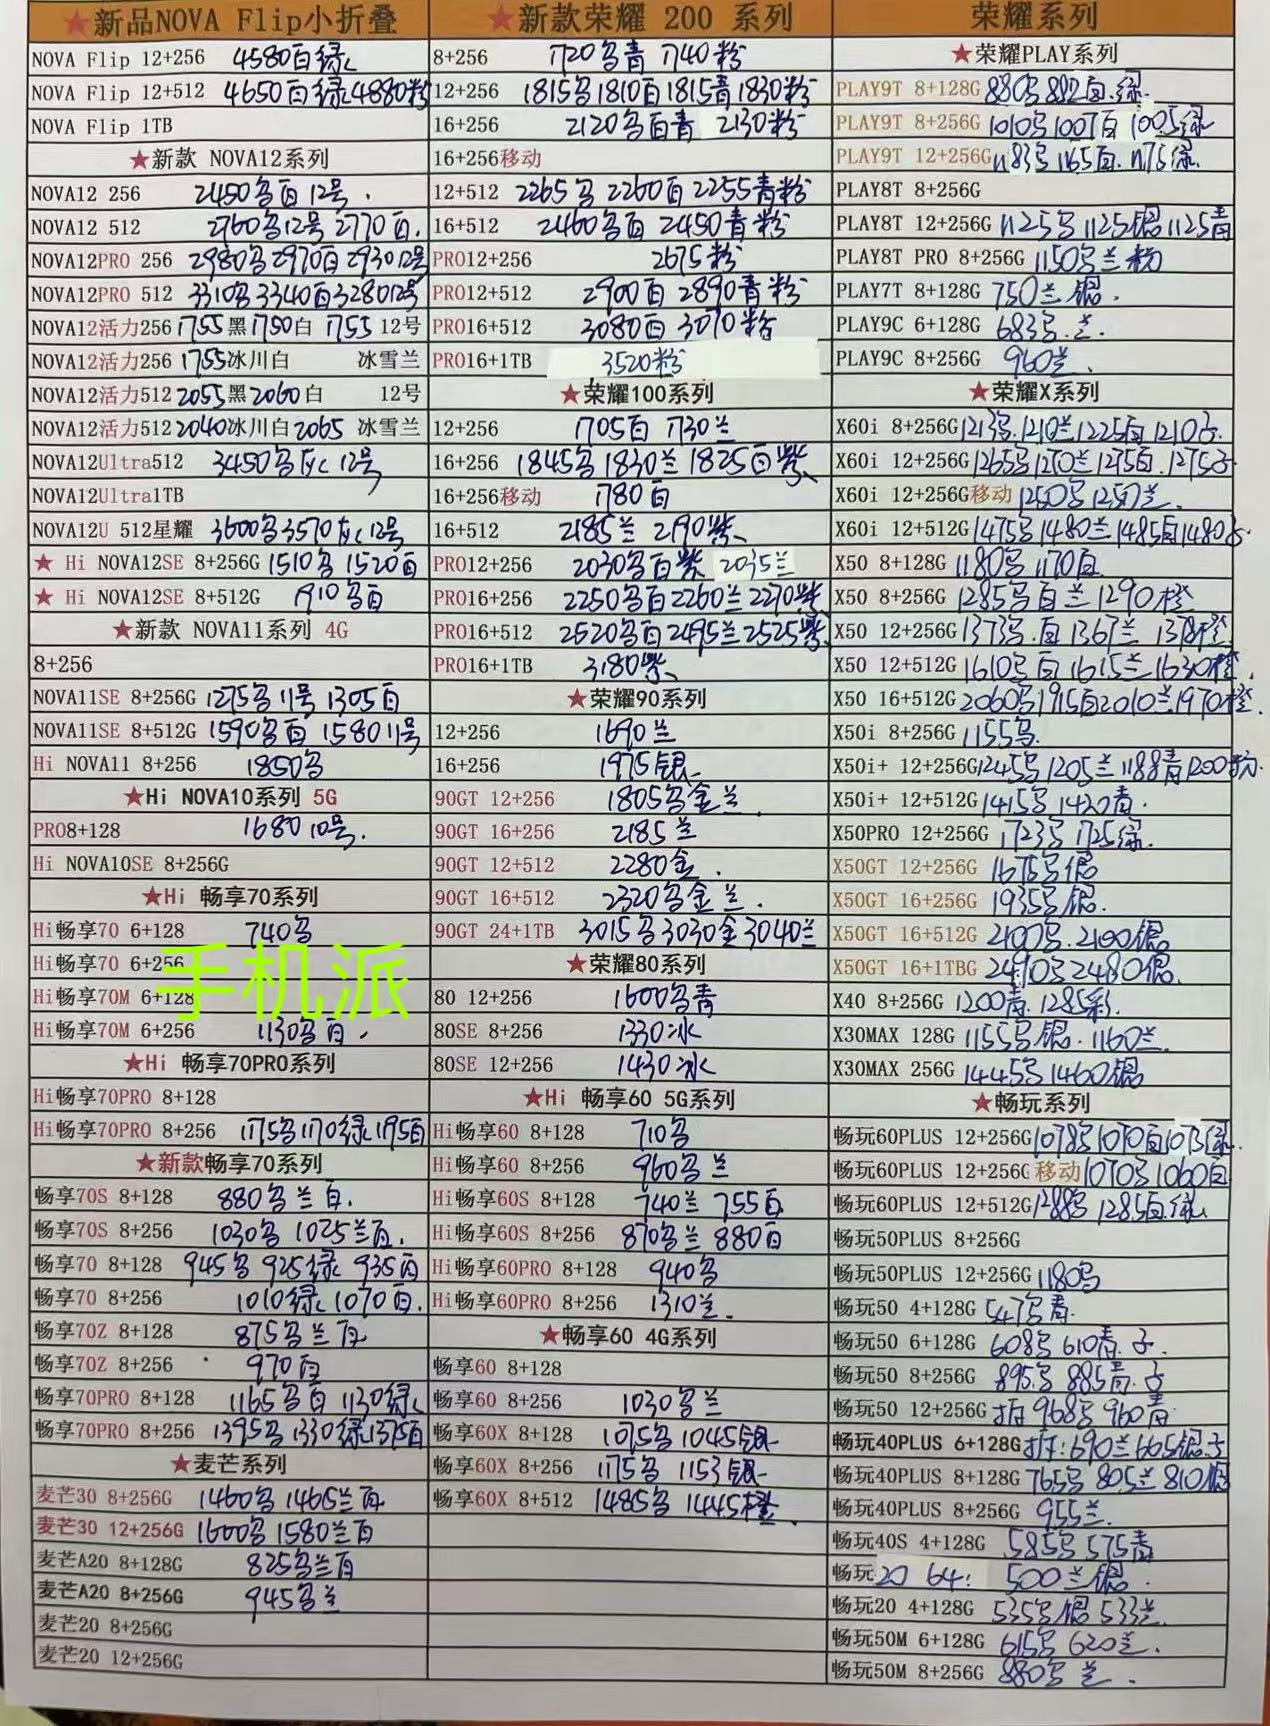 ★新品NOVA Flip小折叠
NOVA Flip 12+256 4580白绿
NOVA Flip 12+512 4650白绿4880粉
NOVA Flip 1TB
★新款 NOVA12系列
NOVA12 256 2450乌白12号.
NOVA12 512 2760乌12号 2770白.
NOVA12PRO 256 2980乌2970白2930 12号
NOVA12PRO 512 3310乌3340白3280 12号
NOVA12活力256 1755黑1750白 1755 12号
NOVA12活力256 1755冰川白 冰雪兰
NOVA12活力512 2055黑2060白 12号
NOVA12活力512 2040冰川白2065 冰雪兰
NOVA12Ultra512 3450乌灰12号
NOVA12Ultra1TB
NOVA12U 512星耀 3600乌3570灰12号
★ Hi NOVA12SE 8+256G 1510乌 1520白
★ Hi NOVA12SE 8+512G 1910乌白
★新款 NOVA11系列 4G
8+256
NOVA11SE 8+256G 1275乌11号 1305白
NOVA11SE 8+512G 1590乌白 1580 11号
Hi NOVA11 8+256 1850乌
★Hi NOVA10系列 5G
PRO8+128 1680 10号.
Hi NOVA10SE 8+256G
★Hi 畅享70系列
Hi畅享70 6+128 740乌
Hi畅享70 6+256
手机派
Hi畅享70M 6+128
Hi畅享70M 6+256 1130乌白.
★Hi 畅享70PRO系列
Hi畅享70PRO 8+128
Hi畅享70PRO 8+256 1175乌1170绿1195白
★新款畅享70系列
畅享70S 8+128 880乌兰白.
畅享70S 8+256 1030乌 1025兰白.
畅享70 8+128 945乌 925绿 935白
畅享70 8+256 1010绿 1070白.
畅享70Z 8+128 875乌兰白
畅享70Z 8+256 970白
畅享70PRO 8+128 1165乌白 1130绿
畅享70PRO 8+256 1395乌1330绿1375白
★麦芒系列
麦芒30 8+256G 1460乌 1465兰白
麦芒30 12+256G 1600乌 1580兰白
麦芒A20 8+128G 825乌兰白
麦芒A20 8+256G 945乌兰
麦芒20 8+256G
麦芒20 12+256G
★新款荣耀 200 系列
8+256 1720乌青 1740粉
12+256 1815乌1810白1815青1830粉
16+256 2120乌白青 2130粉
16+256移动
12+512 2265乌 2260白 2255青粉
16+512 2460乌白 2450青粉
PRO12+256 2675粉
PRO12+512 2900白 2890青粉
PRO16+512 3080白 3070粉
PRO16+1TB 3520粉
★荣耀100系列
12+256 1705白 1730兰
16+256 1845乌1830兰1825白紫
16+256移动 1780白
16+512 2185兰 2190紫
PRO12+256 2030乌白紫 2035兰
PRO16+256 2250乌白2260兰2270紫
PRO16+512 2520乌白2495兰2525紫
PRO16+1TB 3180紫
★荣耀90系列
12+256 1690兰
16+256 1975银
90GT 12+256 1805乌金兰.
90GT 16+256 2185兰
90GT 12+512 2280金.
90GT 16+512 2320乌金兰.
90GT 24+1TB 3015乌3030金3040兰
★荣耀80系列
80 12+256 1600乌青
80SE 8+256 1330冰
80SE 12+256 1430冰
★Hi 畅享60 5G系列
Hi畅享60 8+128 710乌
Hi畅享60 8+256 960乌兰
Hi畅享60S 8+128 740兰 755白
Hi畅享60S 8+256 870乌兰 880白
Hi畅享60PRO 8+128 940乌
Hi畅享60PRO 8+256 1310兰.
★畅享60 4G系列
畅享60 8+128
畅享60 8+256 1030乌兰
畅享60X 8+128 1075乌 1045银
畅享60X 8+256 1175乌 1153银
畅享60X 8+512 1485乌 1445橙.
荣耀系列
★荣耀PLAY系列
PLAY9T 8+128G 880乌 882白.绿.
PLAY9T 8+256G 1010乌 1007白 1005绿
PLAY9T 12+256G 1183乌 1165白. 1175绿.
PLAY8T 8+256G
PLAY8T 12+256G 1125乌 1125银 1125青
PLAY8T PRO 8+256G 1150乌兰粉
PLAY7T 8+128G 750兰银.
PLAY9C 6+128G 683乌.兰.
PLAY9C 8+256G 960兰.
★荣耀X系列
X60i 8+256G 1213乌.1210兰1225白1210子.
X60i 12+256G 1265乌1270兰1275白.1275子
X60i 12+256G移动 1250乌1250兰.
X60i 12+512G 1475乌1480兰1485白1480子
X50 8+128G 1180乌 1170白
X50 8+256G 1285乌白兰1290橙
X50 12+256G 1373乌.白1367兰 1378橙
X50 12+512G 1610乌白1615兰1630橙.
X50 16+512G 2060乌1915白2010兰1970橙.
X50i 8+256G 1155乌.
X50i+ 12+256G 1245乌1205兰1188青1200粉.
X50i+ 12+512G 1415乌 1420青.
X50PRO 12+256G 1723乌 1725绿.
X50GT 12+256G 1675乌银
X50GT 16+256G 1935乌银.
X50GT 16+512G 2100乌.2100银
X50GT 16+1TBG 2490乌2480银.
X40 8+256G 1200青.1285彩.
X30MAX 128G 1155乌银.1160兰.
X30MAX 256G 1445乌1460银
★畅玩系列
畅玩60PLUS 12+256G 1078乌1070白1073绿.
畅玩60PLUS 12+256G 移动1070乌1060白
畅玩60PLUS 12+512G 1288乌 1285白.绿
畅玩50PLUS 8+256G
畅玩50PLUS 12+256G 1180乌
畅玩50 4+128G 547乌青.
畅玩50 6+128G 608乌 610青.子.
畅玩50 8+256G 895乌 885青.子
畅玩50 12+256G 968乌 960青
畅玩40PLUS 6+128G 690兰665银子
畅玩40PLUS 8+128G 765乌 805兰 810银
畅玩40PLUS 8+256G 955兰.
畅玩40S 4+128G 585乌 575青
畅玩20 64: 500兰银.
畅玩20 4+128G 535乌银 533兰.
畅玩50M 6+128G 615乌 620兰.
畅玩50M 8+256G 880乌兰.